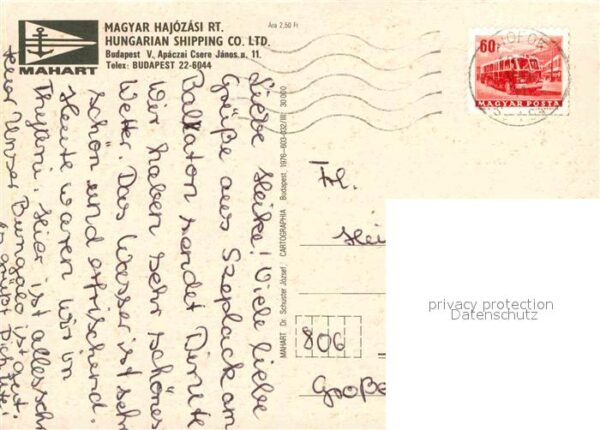 MAGYAR HAJÓZÁSI RT.
HUNGARIAN SHIPPING CO. LTD.
Budapest V, Apáczai Csere János u. 11.
Telex: BUDAPEST 22-6044
MAHART
Ára 2,50 Ft
60f
MAGYAR POSTA
Liebe Heike! Viele liebe
Grüße aus Szeplack am
Balkaton sendet Dir
Wir haben sehr schönes
Wetter. Das Wasser ist sehr
schön und erfrischend.
Heute waren wir in
Hier ist alles sehr
teuer. Unser Bungalo ist gut.
MAHART Dr. Schuster József CARTOGRAPHIA Budapest, 1976
30 000
Frl.
Hei
806
Große
privacy protection
Datenschutz